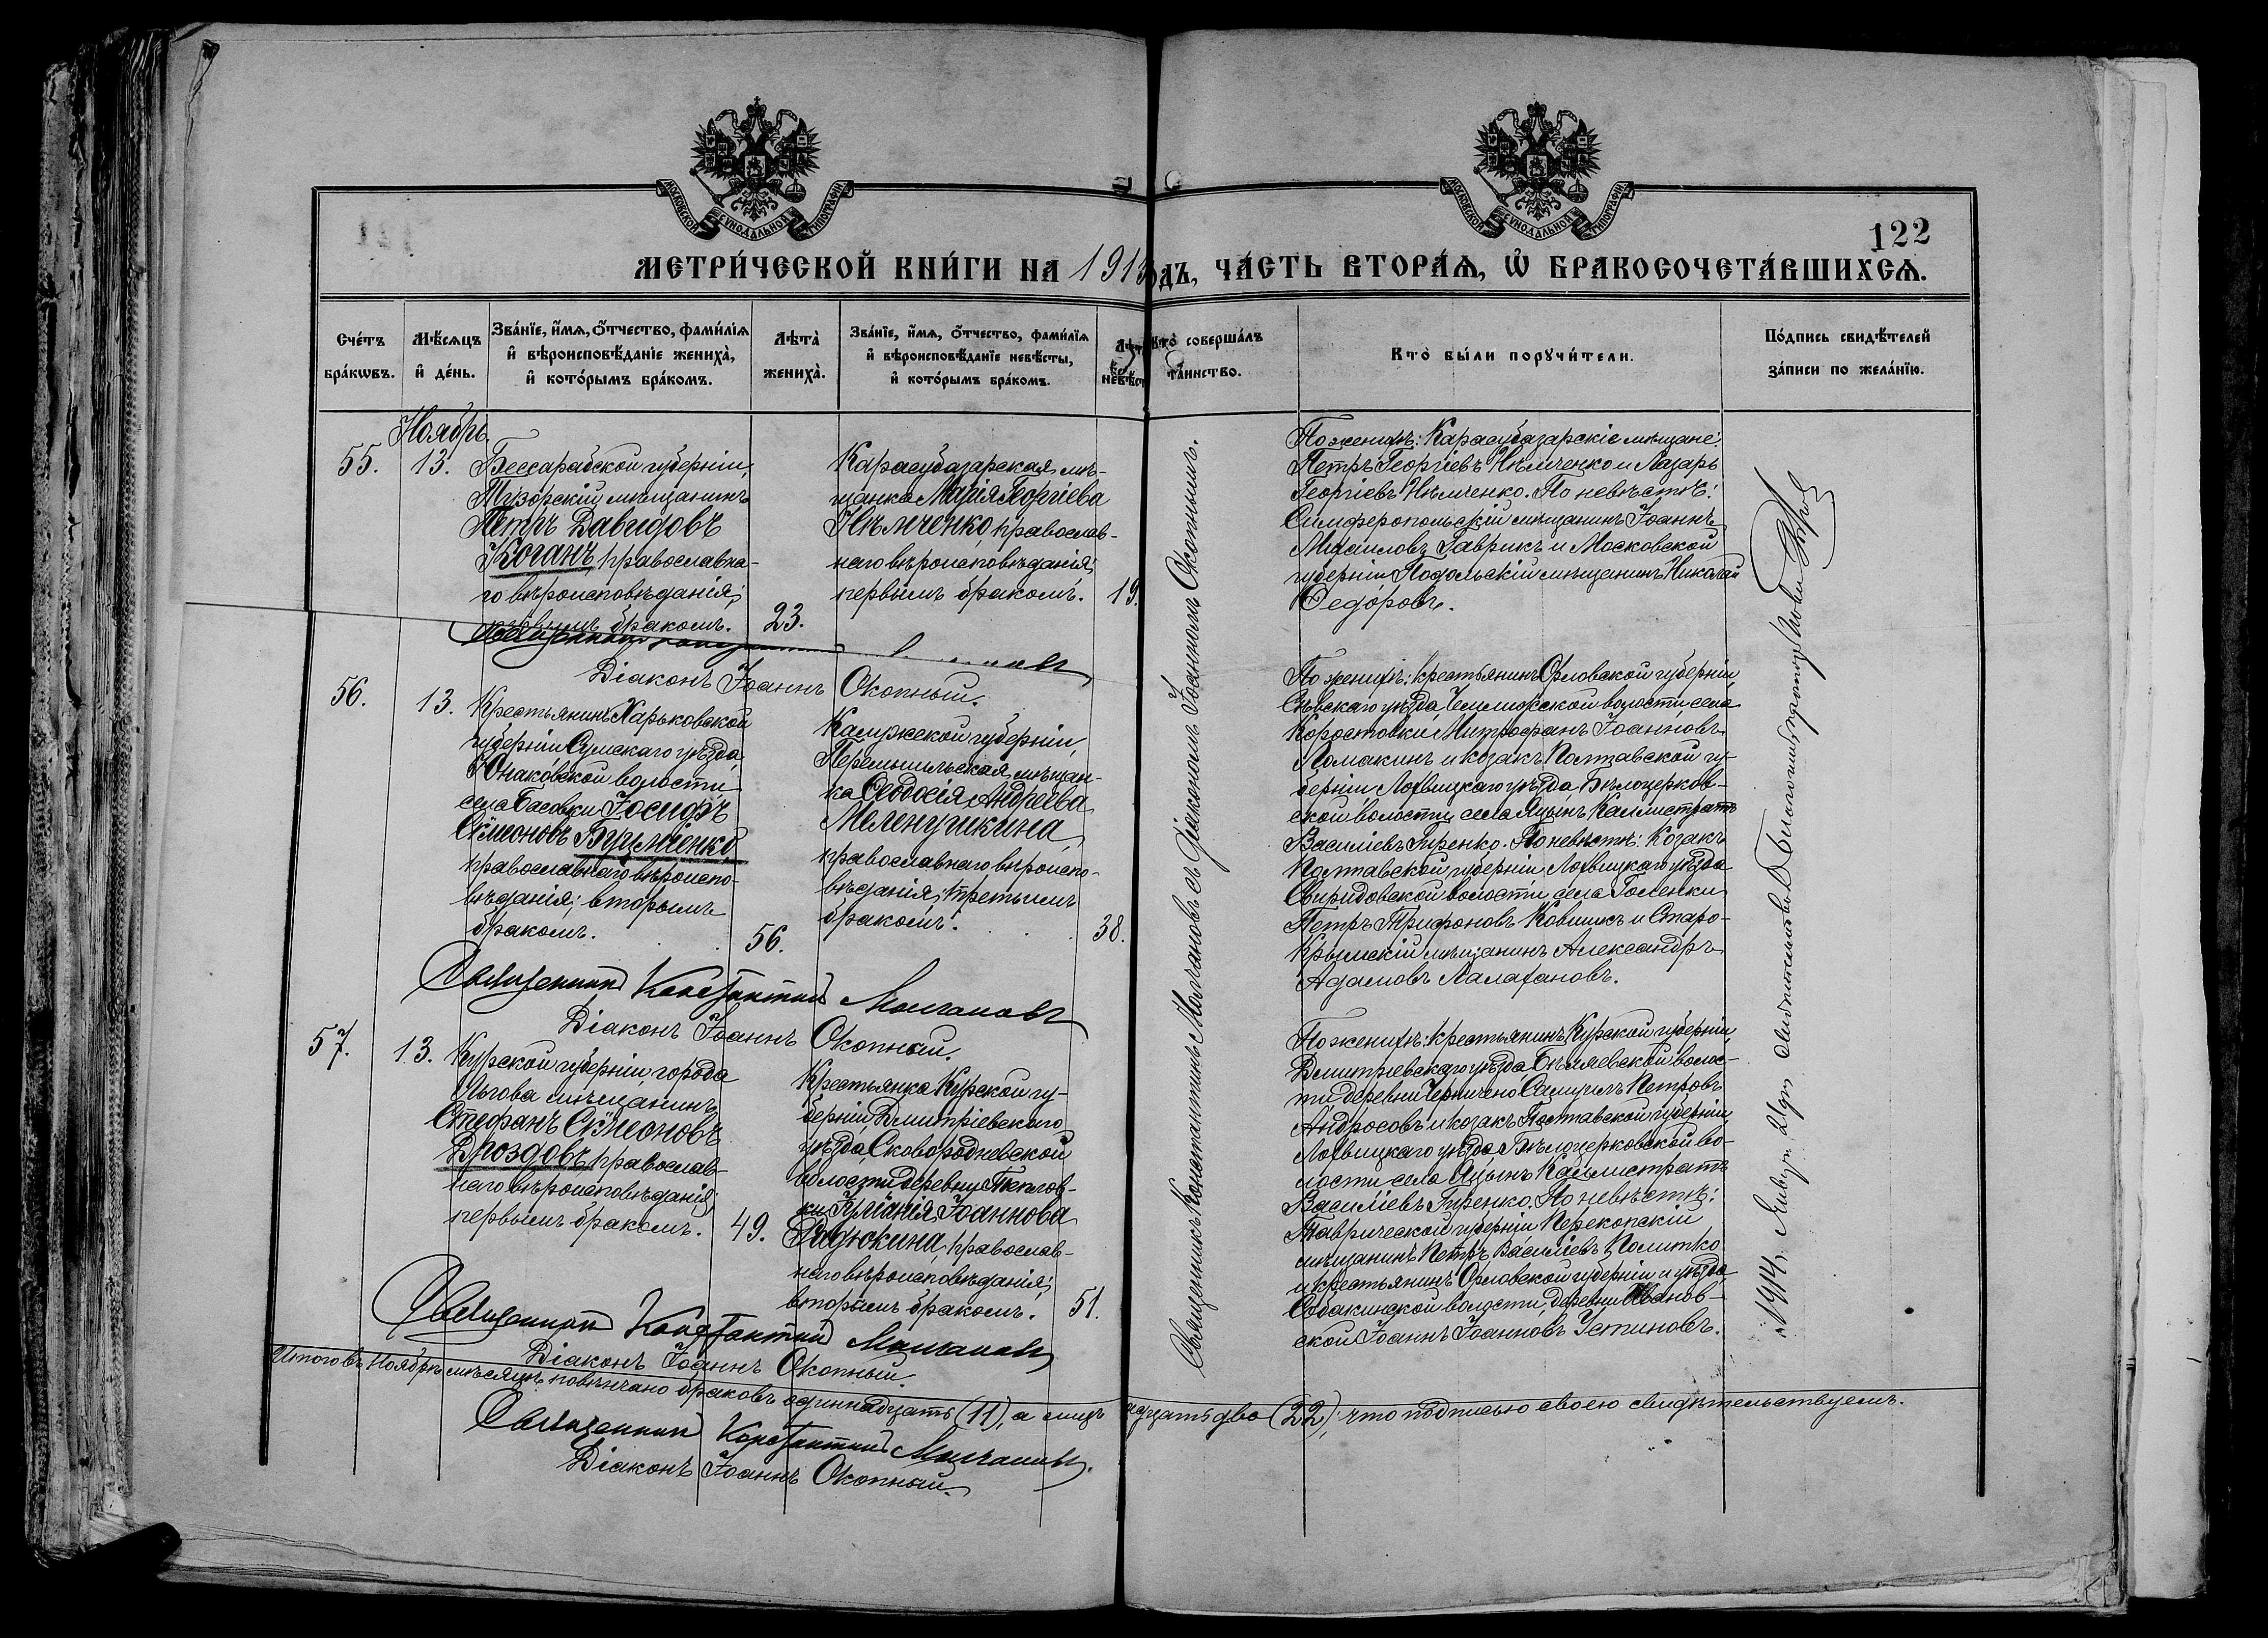 122
МЕТРИ́ЧЕСКОЙ КНИ́ГИ НА 1913 ДЪ, ЧА́СТЬ ВТОРА́Я, Ѡ БРАКОСОЧЕТА́ВШИХСѦ.
Сче́тъ бра́кωвъ.
Мѣ́сѧцъ и де́нь.
Зва́нїе, и́мѧ, о́тчество, фами́лїѧ и вѣроисповѣ́данїе жениха̀, и кото́рымъ бра́комъ.
Лѣта̀ жениха̀.
Зва́нїе, и́мѧ, о́тчество, фами́лїѧ и вѣроисповѣ́данїе невѣ́сты, и кото́рымъ бра́комъ.
Лѣт невѣ́ст
Кто̀ соверша́лъ та́инство.
Кто̀ бы́ли порꙋчи́тели.
По́дпись свидѣ́телей за́писи по жела́нїю.
Ноябрь
55.
13.
Бессарабской губерніи,
Тузорскій мѣщанинъ
Петръ Давидовъ
Коганъ, православна-
го вѣроисповѣданія;
первымъ бракомъ.
23.
Карасубазарская мѣ-
щанка Марія Георгіева
Нѣмченко, православ-
наго вѣроисповѣданія;
первымъ бракомъ.
19.
По женихѣ: Карасубазарскіе мѣщане:
Петръ Георгіевъ Нѣмченко и Лазарь
Георгіевъ Нѣмченко. По невѣстѣ:
Симферопольскій мѣщанинъ Іоаннъ
Михаиловъ Гаврикъ и Московской
губерніи Подольскій мѣщанинъ Николай
Ѳедоровъ.
Священникъ
Діаконъ Іоаннъ Окопный.
56.
13.
Крестьянинъ Харьковской
губерніи Сумскаго уѣзда,
Юнаковской волости
села Басовки Іосифъ
Сѵмеоновъ
православнаго вѣроиспо-
вѣданія; вторымъ
бракомъ.
56.
Калужской губерніи,
Перемышльская мѣщан-
ка Ѳеодосія Андреева
Меленушкина,
православнаго вѣроиспо-
вѣданія; третьимъ
бракомъ.
38.
По женихѣ: крестьянинъ Орловской губерніи,
Сѣвскаго уѣзда, Чемлижской волости села
Коростовки Митрофанъ Іоанновъ
Ломакинъ и козакъ Полтавской гу-
берніи Лохвицкаго уѣзда Бѣлоцерков-
ской волости села Яцынъ Каллистратъ
Василіевъ Гиренко. По невѣстѣ: Козакъ
Полтавской губерніи Лохвицкаго уѣзда
Свиридовской волости села Голенки
Петръ Трифоновъ и Старо-
Крымскій мѣщанинъ Александръ
Адамовъ Калафановъ.
Священникъ Константинъ Молчановъ
Діаконъ Іоаннъ Окопный.
57.
13.
Курской губерніи, города
Льгова мѣщанинъ
Стефанъ Сѵмеоновъ
Дроздовъ, православ-
наго вѣроисповѣданія;
первымъ бракомъ.
49.
Крестьянка Курской гу-
берніи Дмитріевскаго
уѣзда, Сковородневской
волости деревни Тиклов-
ки Іуліанія Іоаннова
православ-
наго вѣроисповѣданія;
вторымъ бракомъ.
51.
По женихѣ: крестьянинъ Курской губерніи,
Дмитріевскаго уѣзда, волос-
ти деревни Черничено Самуилъ Петровъ
Андросовъ и козакъ Полтавской губерніи,
Лохвицкаго уѣзда Бѣлоцерковской во-
лости села Яцынъ Каллистратъ
Василіевъ Гиренко. По невѣстѣ:
Таврической губерніи Перекопскій
мѣщанинъ Петръ Василіевъ Политко
и крестьянинъ Орловской губерніи и уѣзда
Собакинской волости, деревни Иванов-
ской Іоаннъ Іоанновъ Устиновъ.
Священникъ Константинъ Молчановъ
Діаконъ Іоаннъ Окопный.
Священникъ Константинъ Молчановъ съ діакономъ Іоанномъ Окопнымъ.
Итого въ Ноябрѣ мѣсяцѣ повѣнчано браковъ одиннадцать (11), а лицъ дцать два (22), что подписью своею свидѣтельствуемъ.
Священникъ Константинъ Молчановъ.
Діаконъ Іоаннъ Окопный.